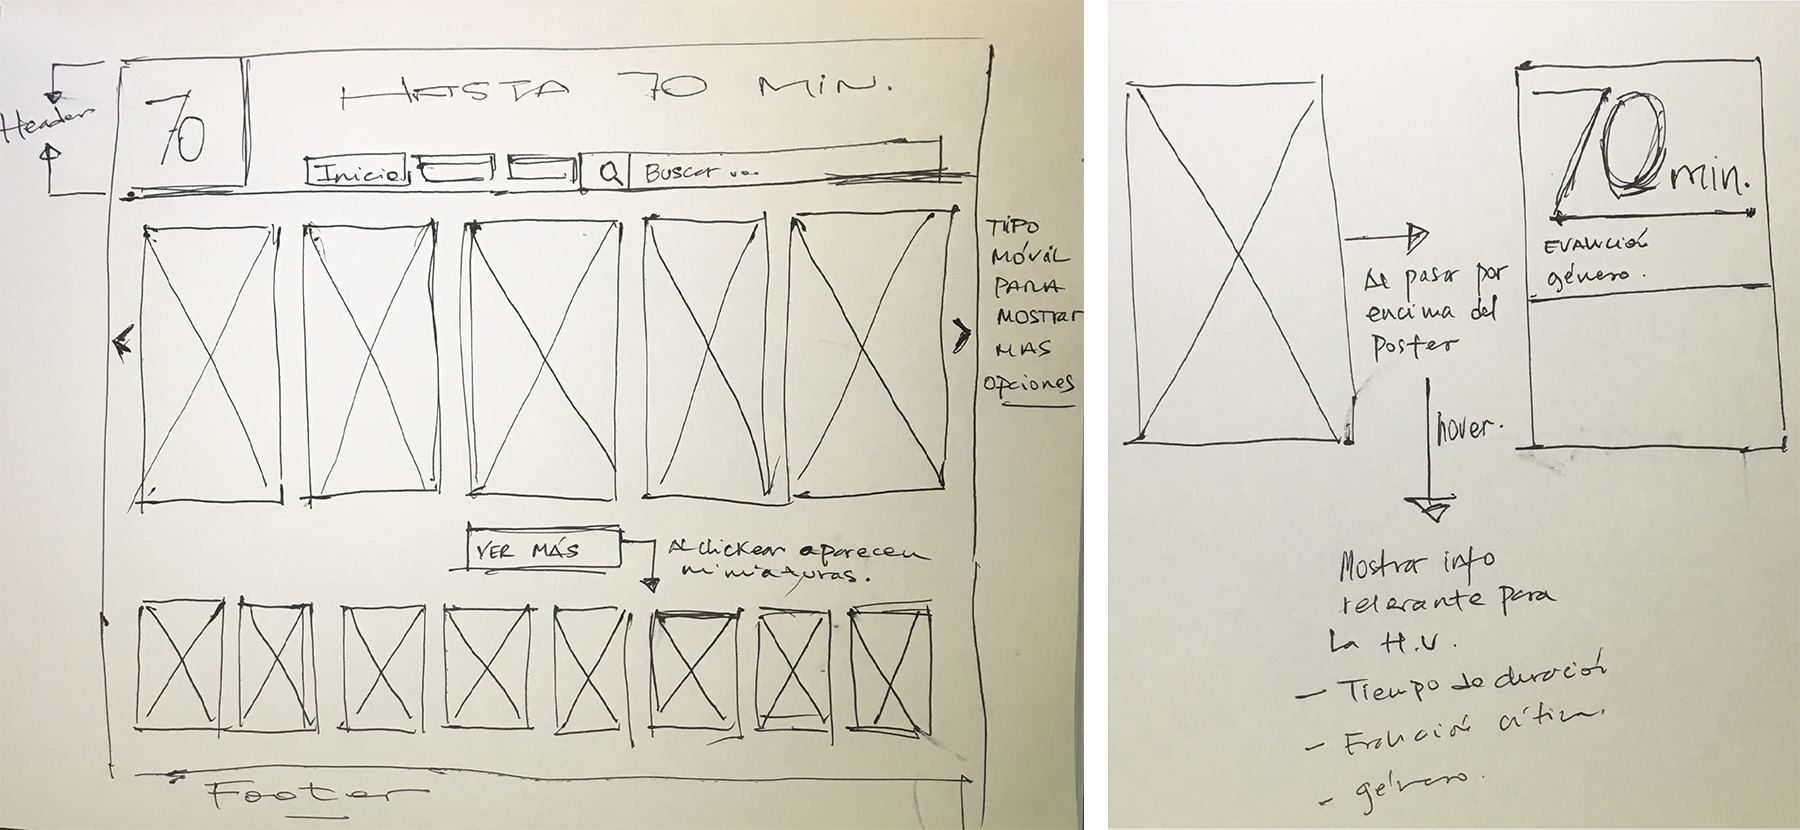 70
HASTA 70 MIN.
Header
Inicio
Buscar ...
TIPO
MÓVIL
PARA
MOSTRAR
MAS
Opciones
VER MÁS
Al clickear aparecen
miniaturas.
Footer
70 min.
EVALUCIÓN
género.
Al pasar por
encima del
Poster
hover.
Mostrar info
relevante para
La H.U.
- Tiempo de duración
- Evalución crítica.
- género.